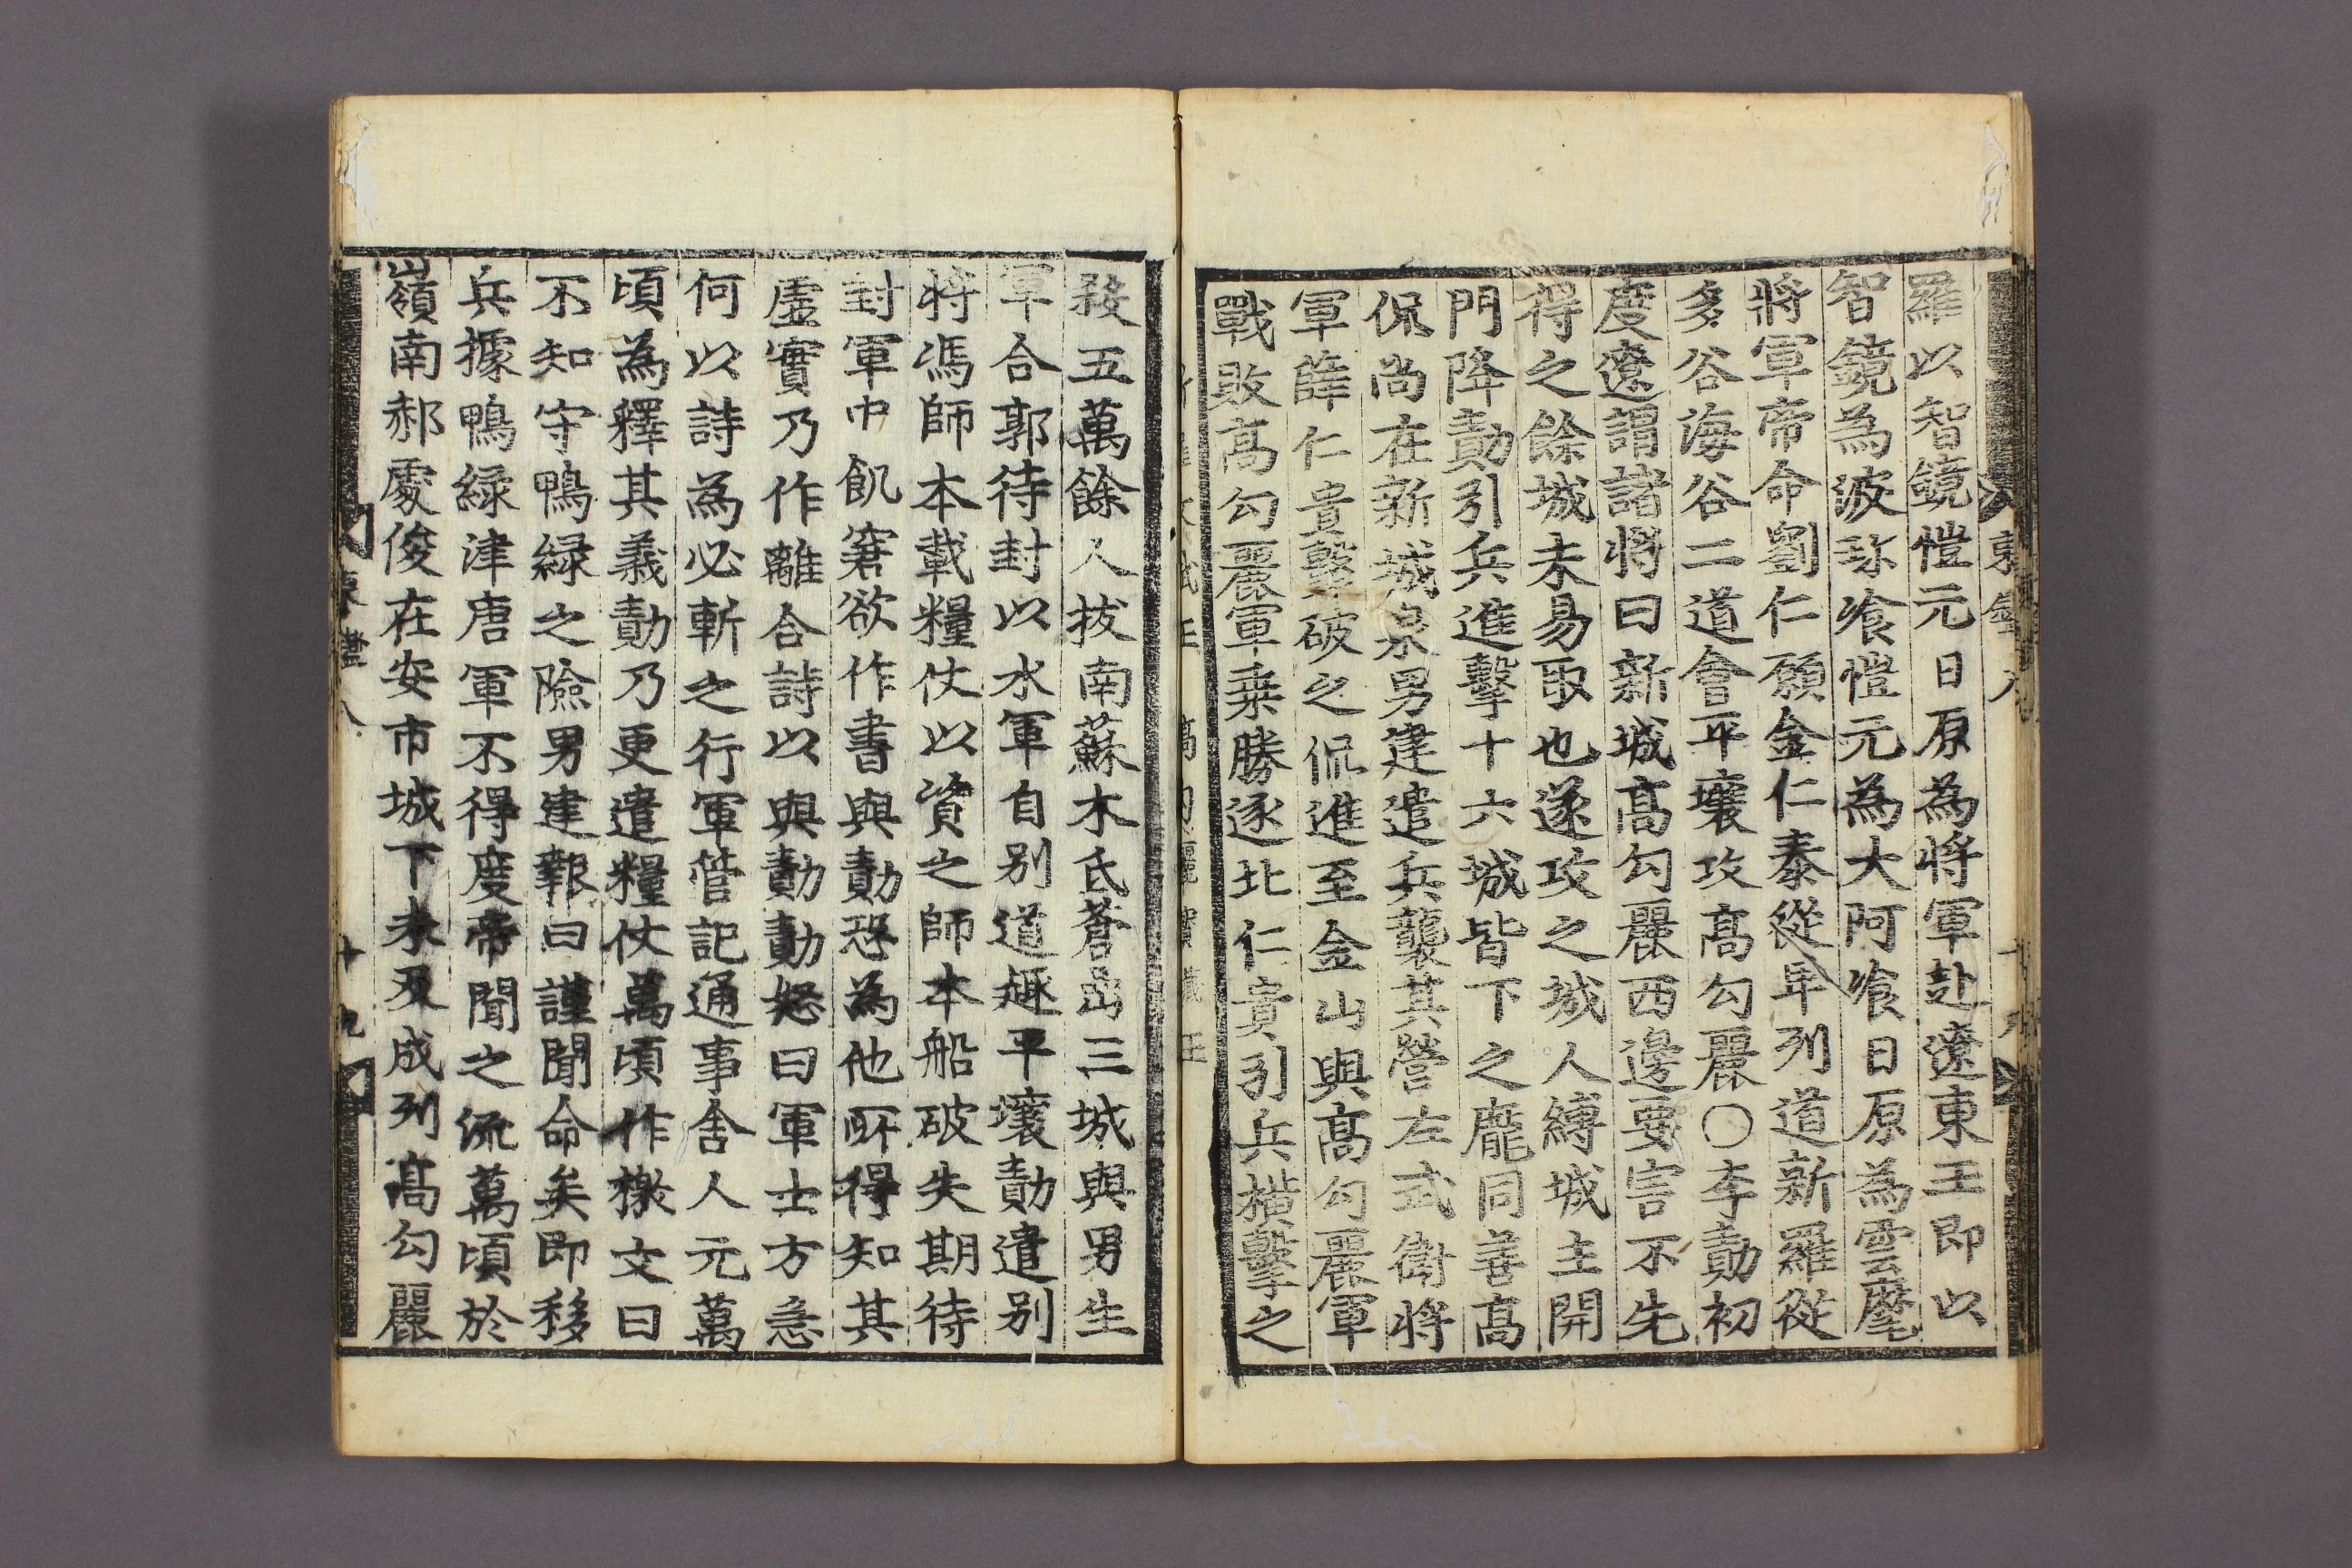 羅以智鏡愷元日原為將軍赴遼東王即以
智鏡為波珍飡愷元為大阿飡日原為雲麾
將軍帝命劉仁願金仁泰從卑列道新羅從
多谷海谷二道會平壤攻髙勾麗〇李勣初
度遼謂諸將曰新城髙勾麗西邊要害不先
得之餘城未易取也遂攻之城人縛城主開
門降勣引兵進擊十六城皆下之龐同善髙
侃尚在新城泉男建遣兵襲其營左武衛將
軍薛仁貴擊破之侃進至金山與髙勾麗軍
戰敗髙勾麗軍乗勝逐北仁貴引兵横擊之
新羅文武王 髙勾麗寳臧王
殺五萬餘人拔南蘇木氐蒼嵓三城與男生
軍合郭待封以水軍自别道趣平壤勣遣别
將馮師本載糧仗以資之師本船破失期待
封軍中飢窘欲作書與勣恐為他所得知其
虛實乃作離合詩以與勣勣怒曰軍士方急
何以詩為必斬之行軍管記通事舍人元萬
頃為釋其義勣乃更遣糧仗萬頃作檄文曰
不知守鴨緑之險男建報曰謹聞命矣即移
兵據鴨緑津唐軍不得度帝聞之流萬頃於
嶺南郝處俊在安市城下未及成列髙勾麗
八
十九